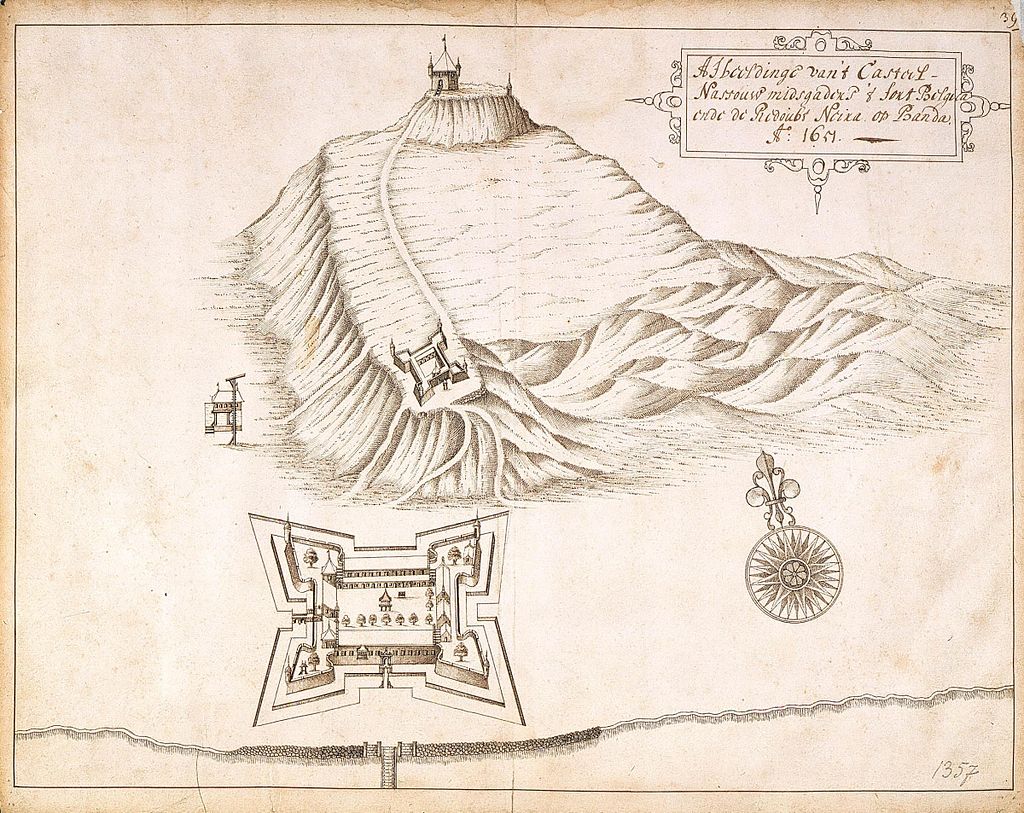 39
Afbeeldinge van't Casteel
Nassouw midsgaders 't fort Belgica
ende de Redoubt Neira op Banda
Aº: 1651.
1357